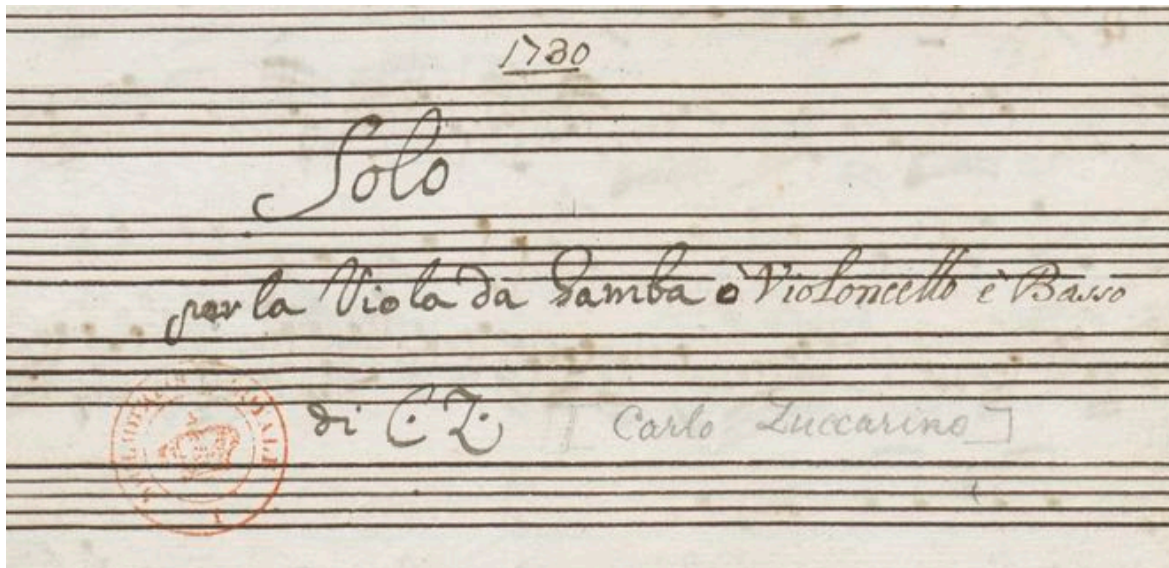 1730
Solo
per la Viola da Gamba ò Violoncello è Basso
di C. Z. [Carlo Zuccarino]